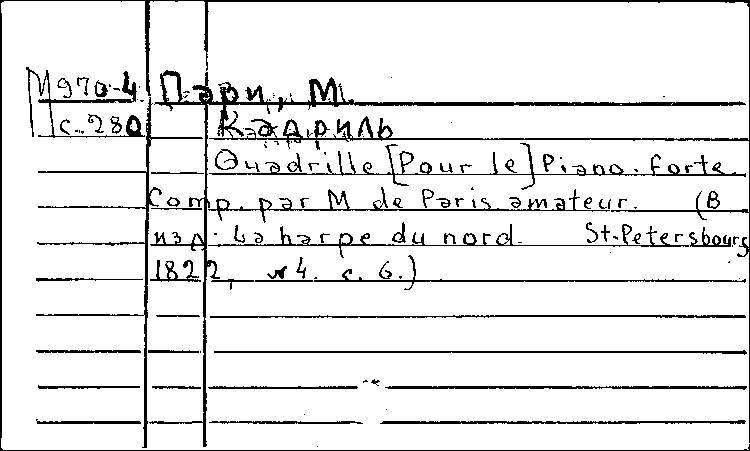 М970-4 Пари, М.
с. 280 Кадриль
Quadrille [Pour le] Piano-forte.
Comp. par M de Paris amateur. (В
изд: La harpe du nord. St-Petersbourg
1822, №4. с. 6.)